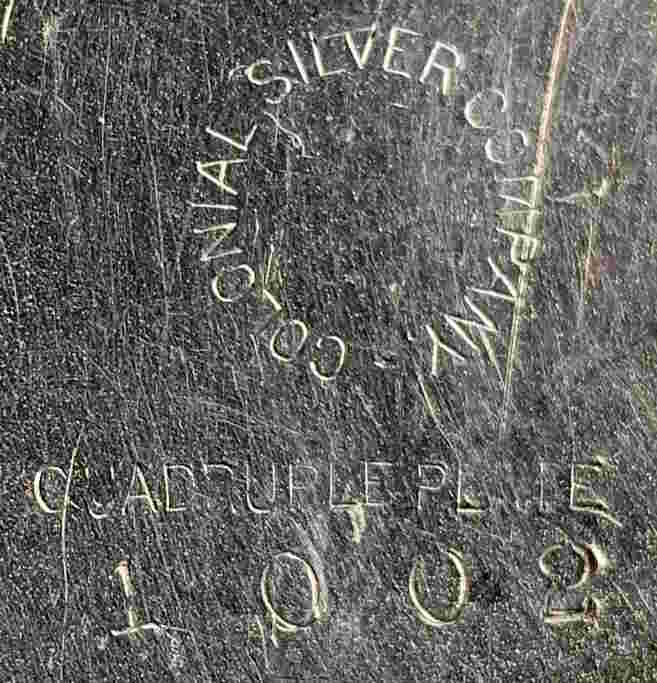 COLONIAL SILVER COMPANY.
QUADRUPLE PLATE
1002